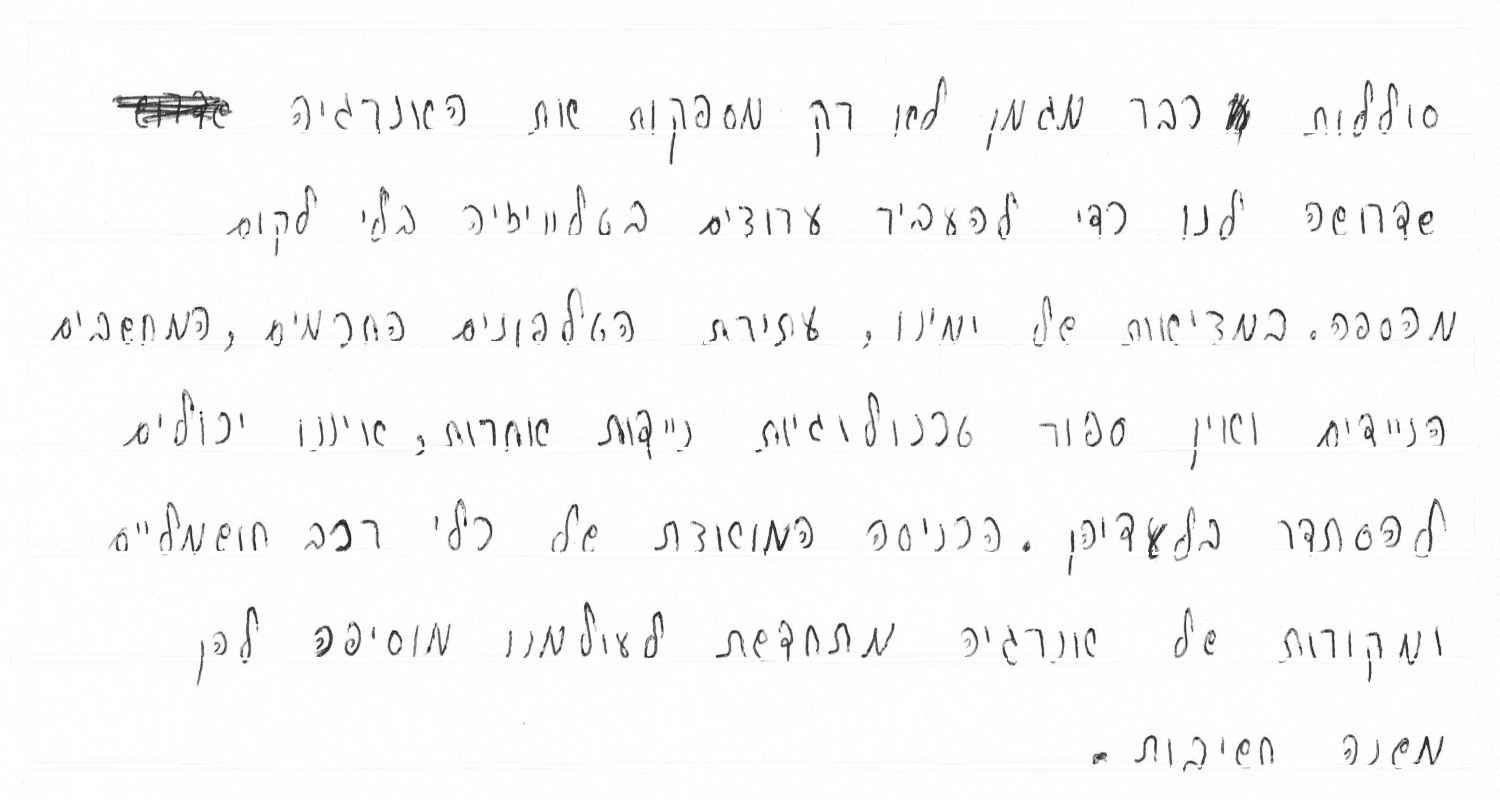 סוללות כבר מזמן לא רק מספקות את האנרגיה
שדרושה לנו כדי להעביר ערוצים בטלוויזיה בלי לקום
מהספה. במציאות של ימינו, עתירת הטלפונים החכמים, המחשבים
הניידים ואין ספור טכנולוגיות ניידות אחרות, איננו יכולים
להסתדר בלעדיהן. הכניסה המואצת של כלי רכב חשמליים
ומקורות של אנרגיה מתחדשת לעולמנו מוסיפה להן
משנה חשיבות.